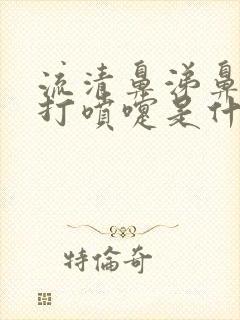 流清鼻涕鼻
打噴嚏是什
特倫奇